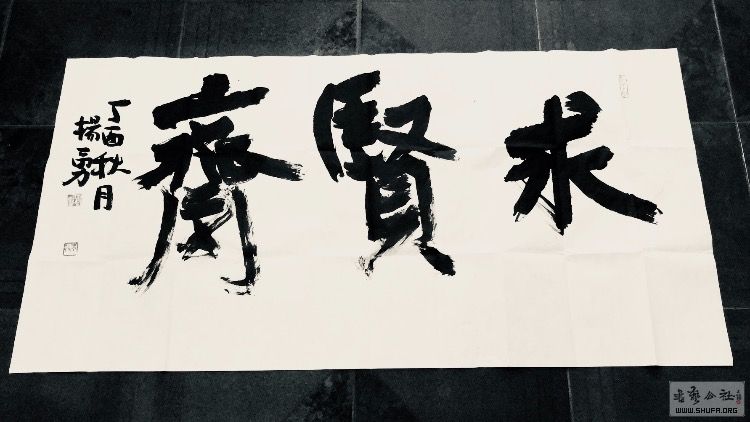 求賢齋
丁酉秋月
楊勇
书艺公社
WWW.SHUFA.ORG